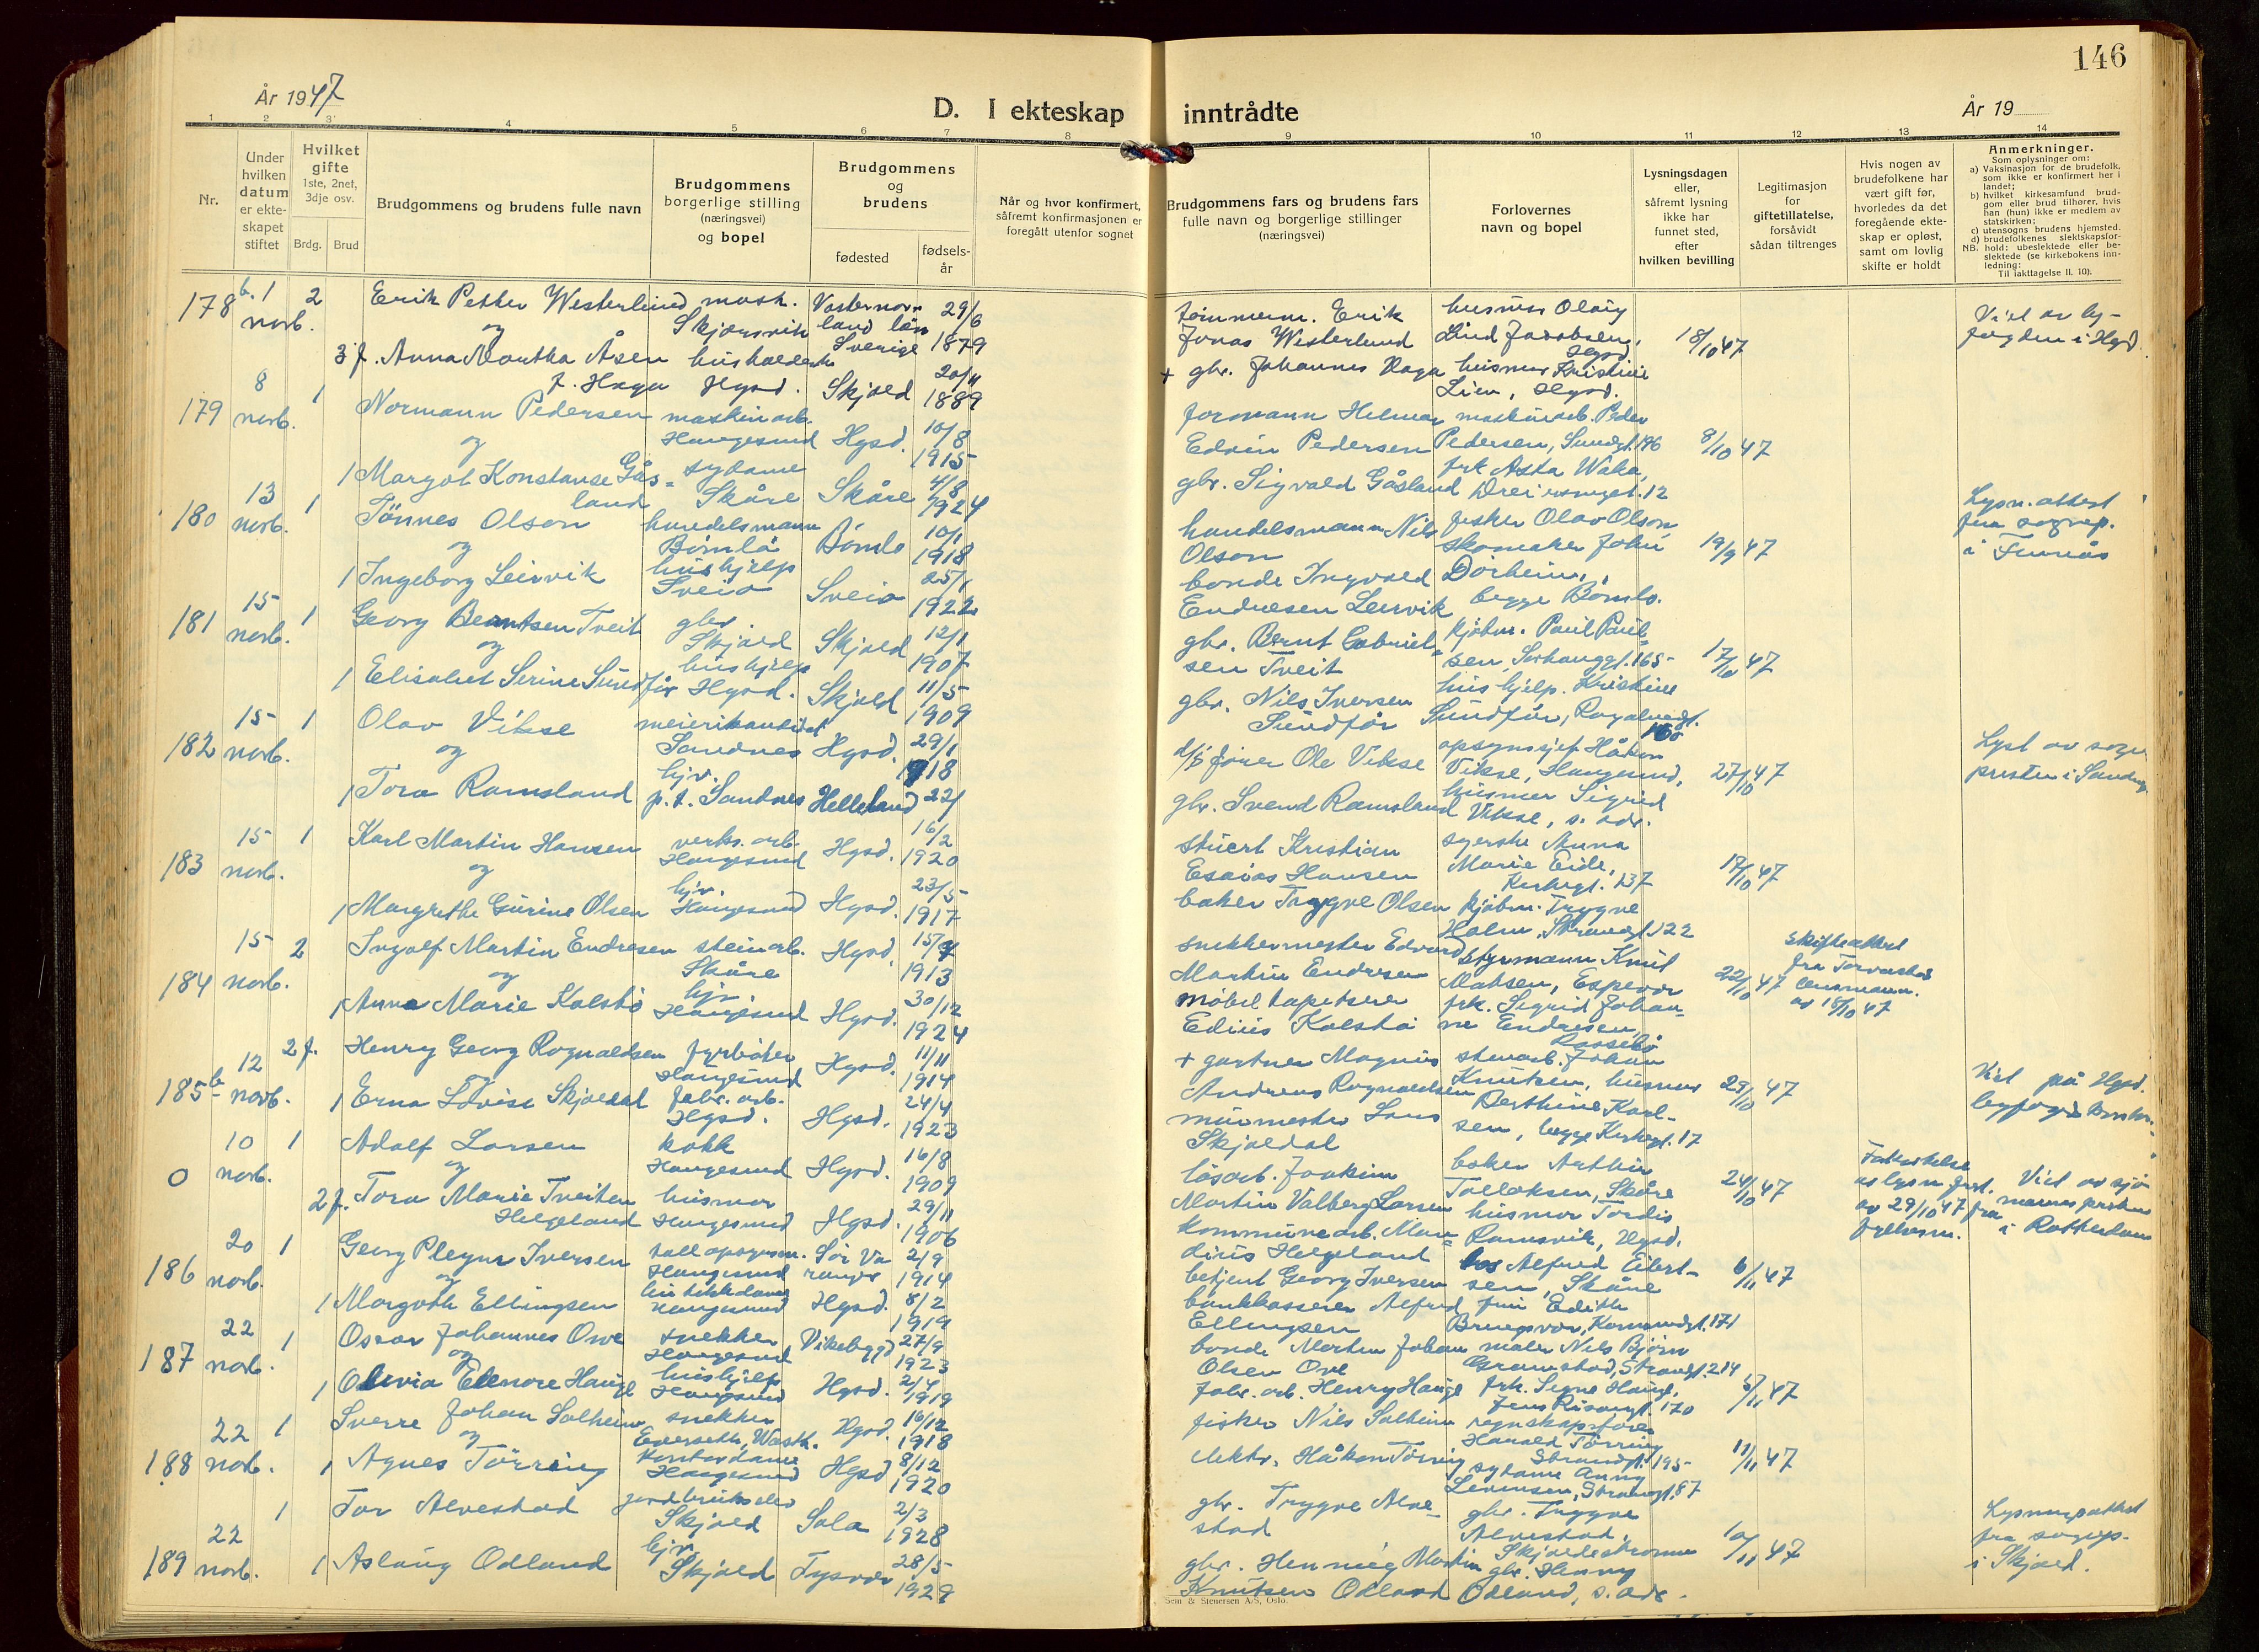 146
År 1947
D. I ekteskap inntrådte
År 19
1 2 3 4 5 6 7 8 9 10 11 12 13 14
Nr.
Under hvilken datum er ekteskapet stiftet
Hvilket gifte 1ste, 2net, 3dje osv.
Brdg. Brud
Brudgommens og brudens fulle navn
Brudgommens borgerlige stilling (næringsvei) og bopel
Brudgommens og brudens
fødested
fødsels-år
Når og hvor konfirmert, såfremt konfirmasjonen er foregått utenfor sognet
Brudgommens fars og brudens fars fulle navn og borgerlige stillinger (næringsvei)
Forlovernes navn og bopel
Lysningsdagen eller, såfremt lysning ikke har funnet sted, efter hvilken bevilling
Legitimasjon for giftetillatelse, forsåvidt sådan tiltrenges
Hvis nogen av brudefolkene har vært gift før, hvorledes da det foregående ekteskap er opløst, samt om lovlig skifte er holdt
Anmerkninger.
Som oplysninger om:
a) Vaksinasjon for de brudefolk, som ikke er konfirmert her i landet;
b) hvilket kirkesamfund brudgom eller brud tilhører, hvis han (hun) ikke er medlem av statskirken;
c) utensogns brudens hjemsted.
d) brudefolkenes slektskapsforhold: ubeslektede eller beslektede (se kirkebokens innledning:
NB.
Til iakttagelse II. 10).
178 b. 1 novb. 2 Erik Petter Westerlund mask. Skjoersvik Vesternorrland län Sverige 29/6 1879
og
3 f. Anna Martha Åsen f. Haga husholderske Hgsd. Skjold 20/11 1889
tømmerm. Erik Jonas Westerlund
+ gbr. Johannes Haga
husmor Olaug Lind Jacobsen, Hgsd.
husmor Kristine Lien, Hgsd.
18/10 47
Viet av byfogden i Hgsd.
179 8 novb. 1 Normann Pedersen maskinarb. Haugesund Hgsd. 10/8 1915
og
1 Margot Konstanse Gåsland sydame Skåre Skåre 4/8 1924
formann Helmar Edvin Pedersen
gbr. Sigvald Gåsland
maskinarb. Peder Pedersen, Sundgt. 196
frk Asta Waka, 12
8/10 47
180 13 novb. 1 Tønnes Olson handelsmann Bømlo Bømlo 10/1 1918
og
1 Ingeborg Leirvik hushjelp Sveio Sveio 25/1 1922
handelsmann Nils Olson
bonde Ingvald Endresen Leirvik
fisker Olav Olson, skomaker John Dørheim, begge Bømlo.
19/9 47
Lysn.attest fra sognep. i Finnås
181 15 novb. 1 Georg Berntsen Tveit gbr. Skjold Skjold 12/1 1907
og
1 Elisabet Serine Sundfør hushjelp Hgsd. Skjold 11/5 1909
gbr. Bernt Gabrielsen Tveit
gbr. Nils Iversen Sundfør
kjøbm. Paul Paulsen, Sørhauggt. 165
hushjelp. Kristine Sundfør,
17/10 47
182 15 novb. 1 Olav Vikse meierikandidat Sandnes Hgsd. 29/1 1918
og
1 Tora Ramsland hjv. p.t. Sandnes Helleland 22/
d/s fører Ole Vikse
gbr. Svend Ramsland
opsynssjef Håkon Vikse, Haugesund,
husmor Sigrid Vikse, s. adr.
27/10 47
Lyst av sogne presten i Sandnes
183 15 novb. 1 Karl Martin Hansen verks. arb. Haugesund Hgsd. 16/2 1920
og
1 Margrethe Gurine Olsen hjv. Haugesund Hgsd. 23/5 1917
stuert Kristian Esaias Hansen
baker Trygve Olsen
syerske Anna Marie Eide, Kirkegt. 137
kjøbm. Trygve Holm, Strandgt. 122
17/10 47
184 15 novb. 2 Ingolf Martin Endresen steinarb. Skåre Hgsd. 15/7 1913
og
1 Anna Marie Kalstø hjv. Haugesund Hgsd. 30/12 1924
snekkermester Edvard Martin Endresen
møbeltapetserer Edius Kalstø
styrmann Knut Matsen, Espevær
frk. Sigrid Johanne Endresen,
22/10 47
Skifteattest fra Torvastad lensmann. av 18/10 47
185 b 12 novb. 2 f. Henry Georg Rognaldsen fyrbøter Haugesund Hgsd. 11/11 1914
og
1 Erna Lovise Skjoldal fabr. arb. Hgsd. Hgsd. 24/4 1923
+ gartner Magnus Andreas Rognaldsen
murmester Lars Skjoldal
stenarb. Johan Knutsen, husmor Berthine Karlsen, begge Kirkegt. 17
29/10 47
Viet på Hgsd.
0 10 novb. 1 Adolf Larsen kokk Haugesund Hgsd. 16/8 1909
og
2 f. Tora Marie Tveiten Helgeland husmor Haugesund Hgsd. 29/11 1906
løsarb. Joakim Martin Valberg Larsen
kommunearb. Mandius Helgeland
baker Arthur Tollaksen, Skåre
husmor Tordis Ramsvik, Hgsd.
24/10 47
av 29/10 47 fra fylkesm.
Viet av sjømannspresten i Rotterdam
186 20 novb. 1 Georg Pleym Iversen tollopsynsm. Haugesund Sør Varanger 2/9 1914
og
1 Margoth Ellingsen butikkdame Haugesund Hgsd. 8/2 1919
betjent Georg Iversen
bankkasserer Alfred Ellingsen
los Alfred Eilertsen, Skåre
fru Edith
6/11 47
187 22 novb. 1 Oscar Johannes Ove snekker Haugesund Vikebygd 27/9 1923
og
1 Olivia Elenore Hauge hushjelp Haugesund Hgsd. 2/4 1919
bonde Martin Johan Olsen Ove
fabr. arb. Henry Hauge
maler Nils Bjørn Gramstad, Strandgt. 214
frk. Signe Hauge, Jens Risøegt. 170
5/11 47
188 22 novb. 1 Sverre Johan Solheim snekker Everseth, Wash. Hgsd. 16/12 1918
og
1 Agnes Tørring kontordame Haugesund Hgsd 8/12 1920
fisker Nils Solheim
elektr. Håkon Tørring
regnskapsfører Harald Tørring Strandgt. 195
sydame Anny Levensen, Strandgt. 87
11/11 47
189 22 novb. 1 Tor Alvestad jordbrukselev Skjold Sola 2/3 1928
1 Aslaug Odland hjv. Skjold Tysvær 28/5 1929
gbr. Trygve Alvestad
gbr. Henning Martin Knutsen Odland
gbr. Trygve Alvestad, Skjoldastraumen
gbr. Henny Odland, s. adr.
10/11 47
Lysningsattest fra sognep. i Skjold.
Sem & Stenersen A/S, Oslo.